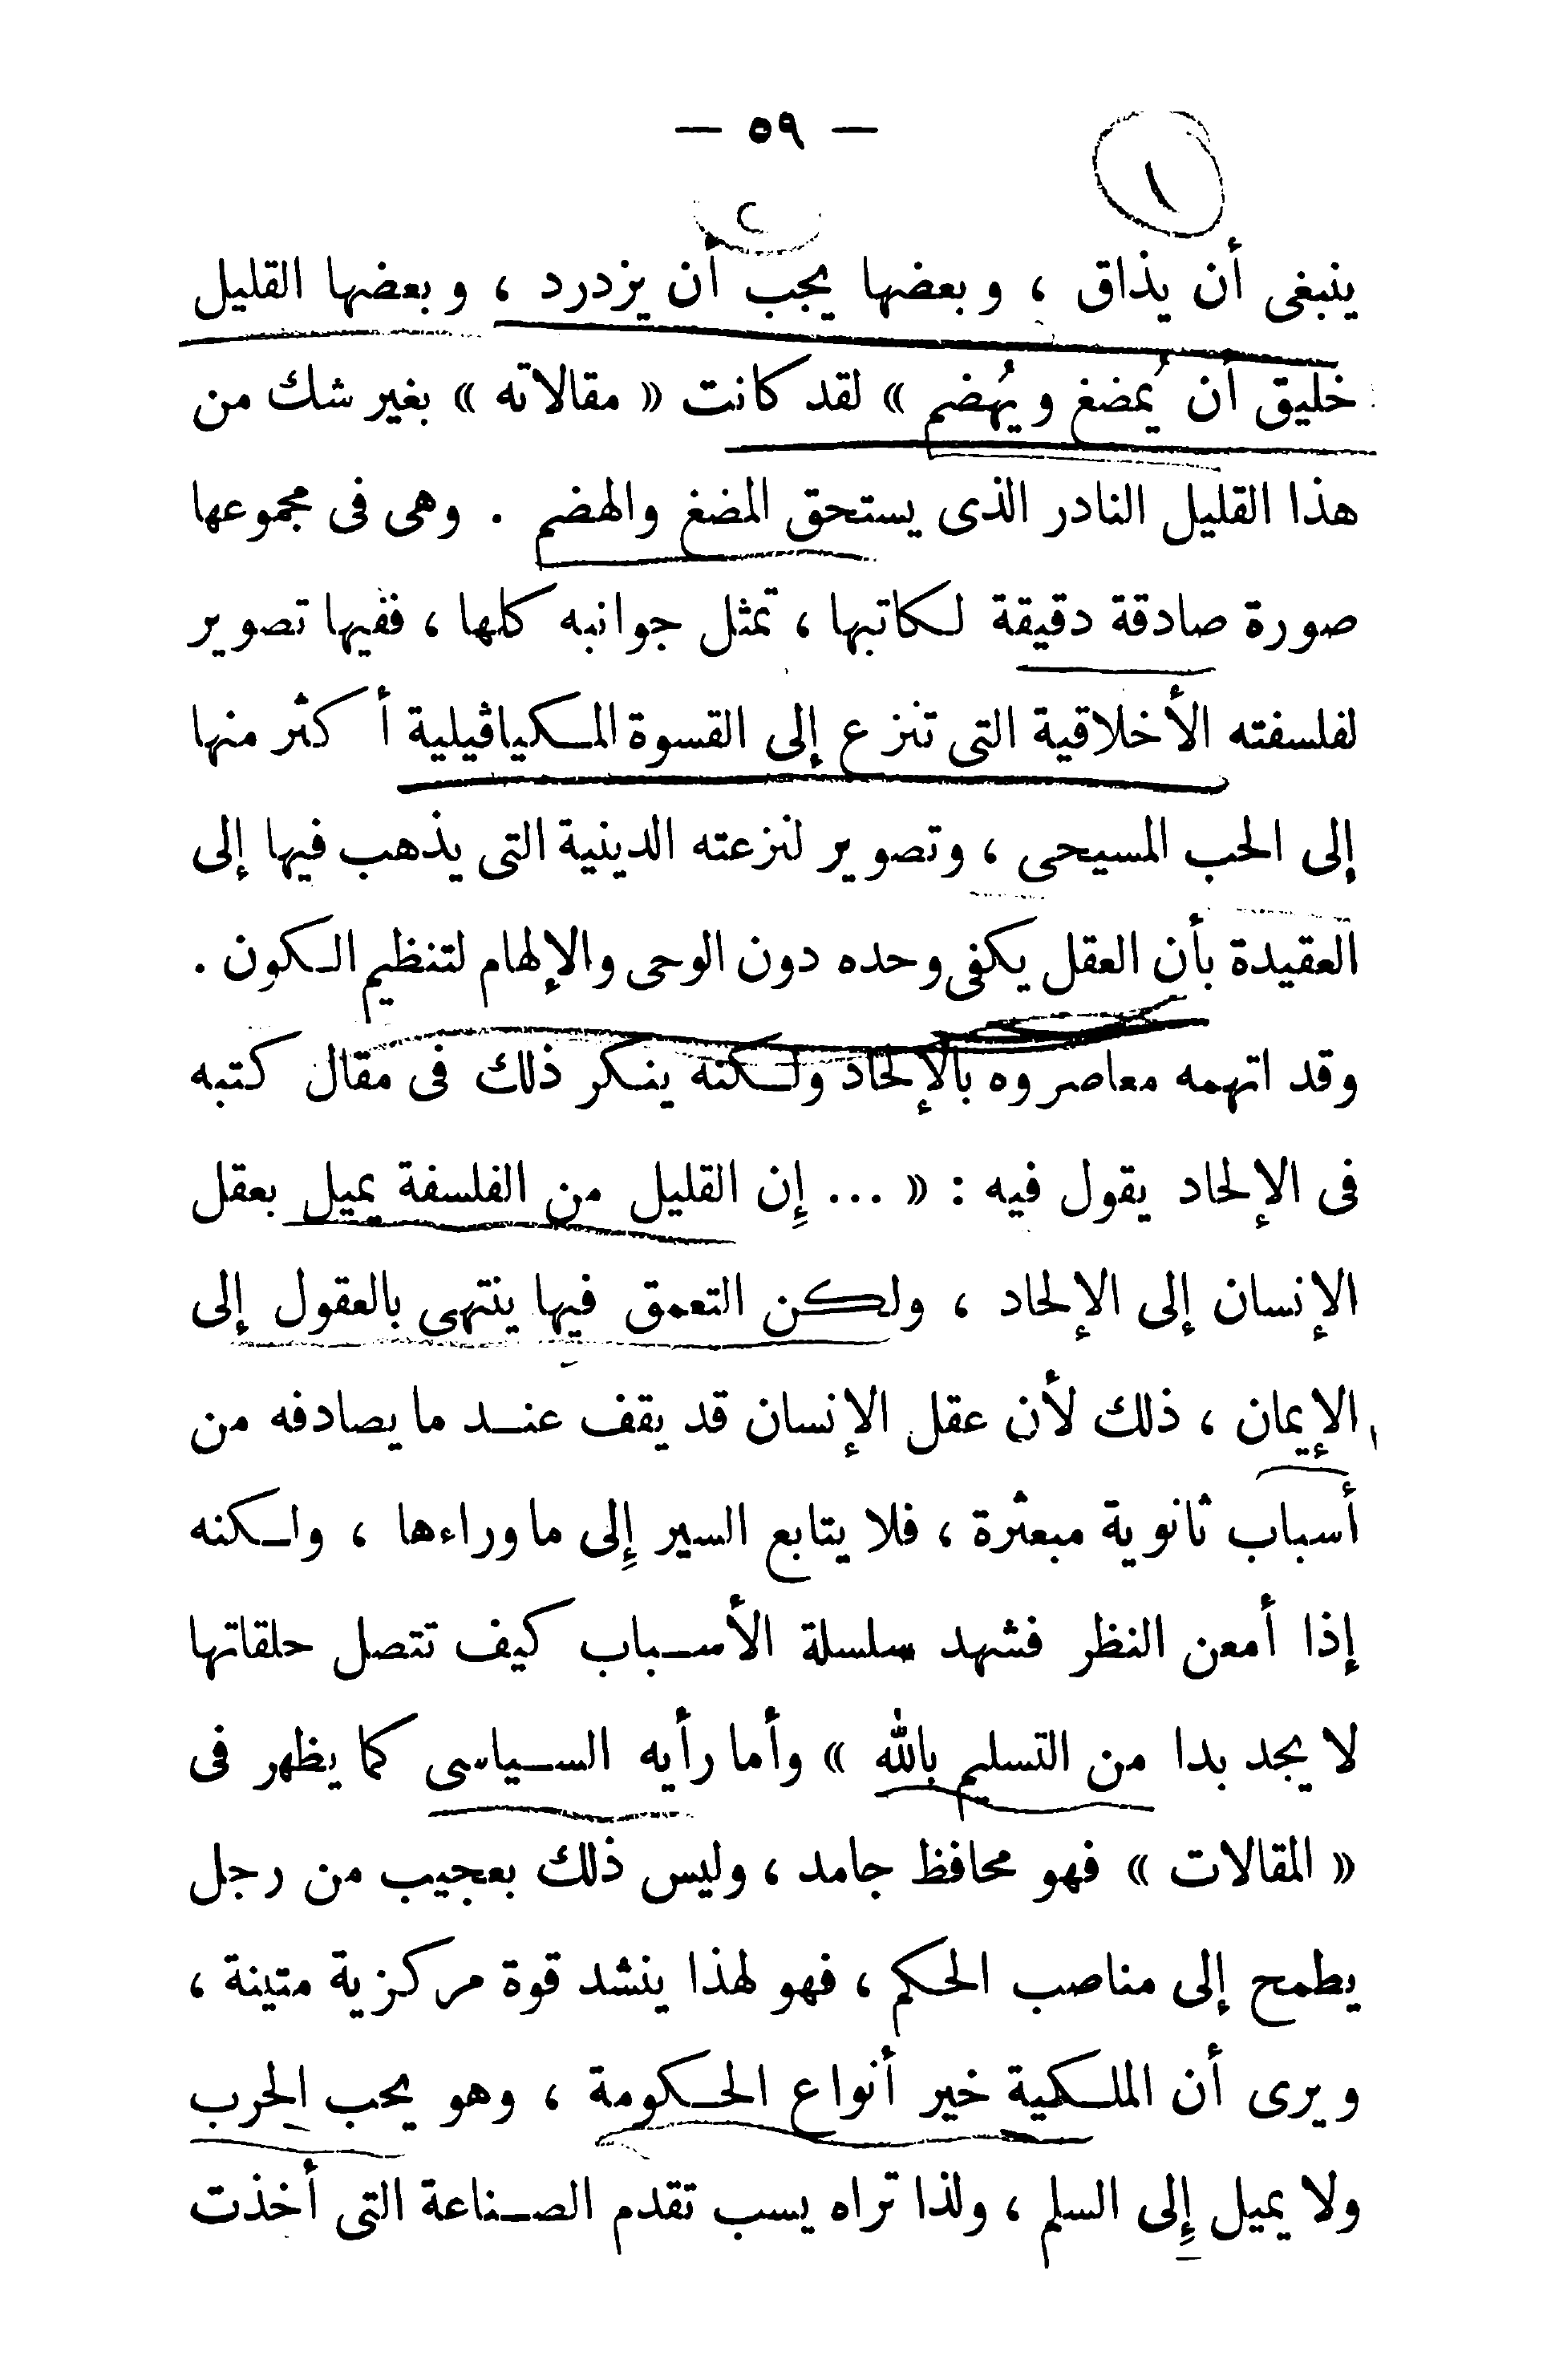 — ٥٩ —
١
٢
ينبغى أن يذاق ، وبعضها يجب أن يزدرد ، وبعضها القليل
خليق أن يُمضغ ويُهضم » لقد كانت « مقالاته » بغير شك من
هذا القليل النادر الذى يستحق المضغ والهضم . وهى فى مجموعها
صورة صادقة دقيقة لكاتبها ، تمثل جوانبه كلها ، ففيها تصوير
لفلسفته الأخلاقية التى تنزع إلى القسوة المكياڤيلية أكثر منها
إلى الحب المسيحى ، وتصوير لنزعته الدينية التى يذهب فيها إلى
العقيدة بأن العقل يكفى وحده دون الوحى والإلهام لتنظيم الكون .
وقد اتهمه معاصروه بالإلحاد ولكنه ينكر ذلك فى مقال كتبه
فى الإلحاد يقول فيه : « ... إِن القليل من الفلسفة يميل بعقل
الإنسان إلى الإلحاد ، ولكن التعمق فيها ينتهى بالعقول إلى
الإيمان ، ذلك لأن عقل الإنسان قد يقف عند ما يصادفه من
أسباب ثانوية مبعثرة ، فلا يتابع السير إِلى ما وراءها ، ولكنه
إذا أمعن النظر فشهد سلسلة الأسباب كيف تتصل حلقاتها
لا يجد بدا من التسليم بالله » وأما رأيه السياسى كما يظهر فى
« المقالات » فهو محافظ جامد ، وليس ذلك بعجيب من رجل
يطمح إلى مناصب الحكم ، فهو لهذا ينشد قوة مركزية متينة ،
ويرى أن الملكية خير أنواع الحكومة ، وهو يحب الحرب
ولا يميل إِلى السلم ، ولذا تراه يسب تقدم الصناعة التى أخذت